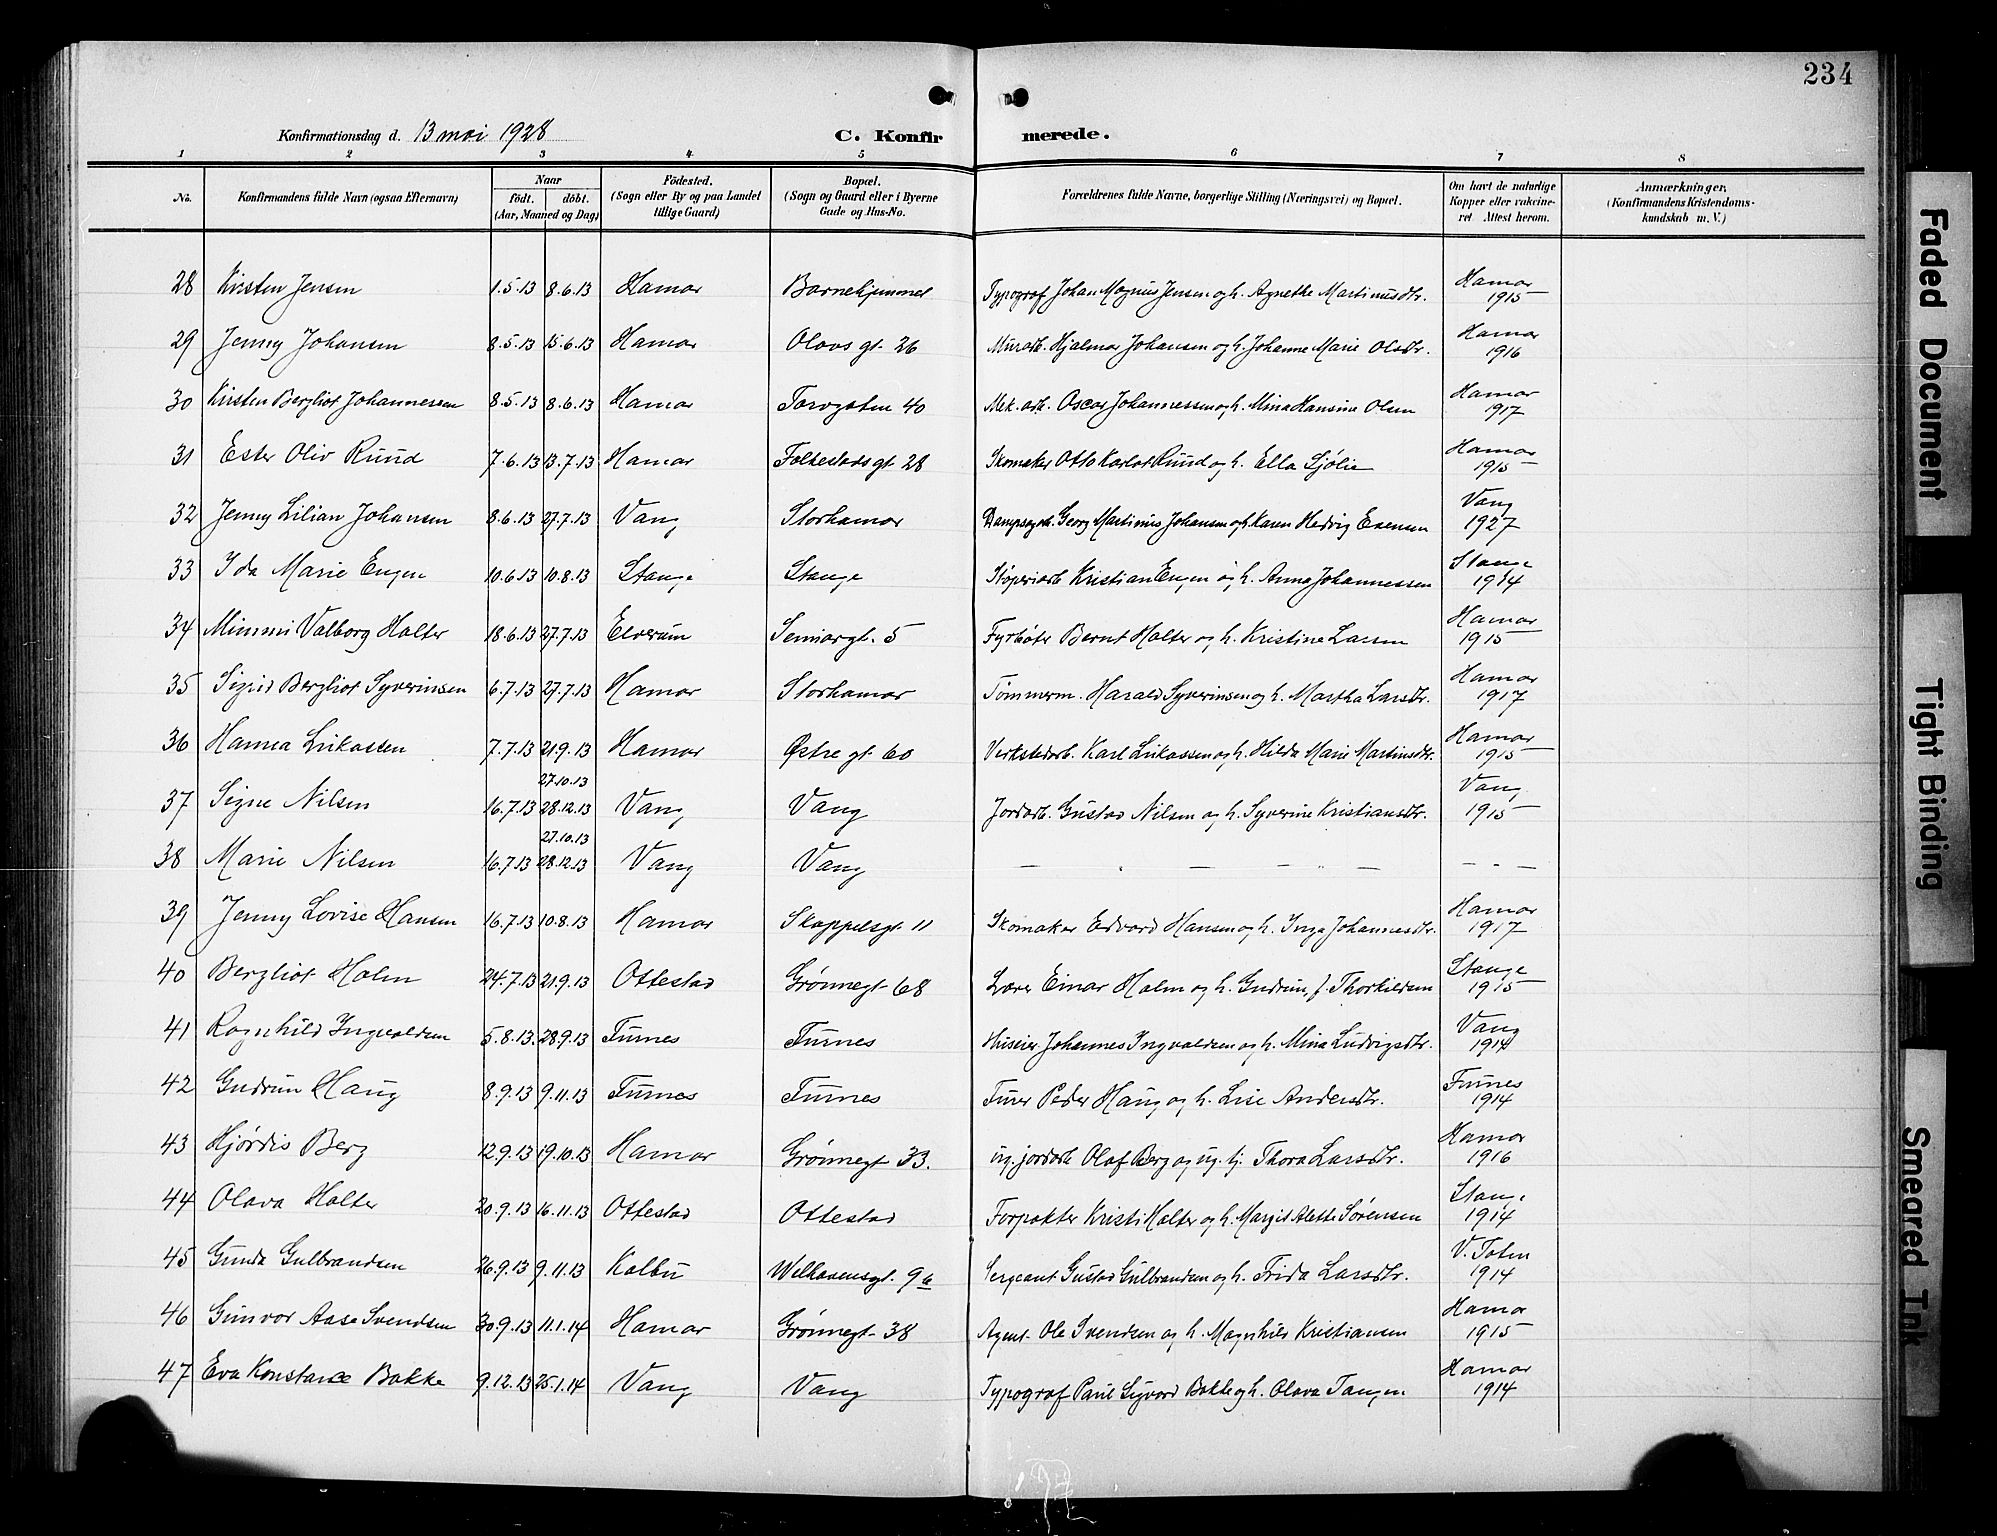 234
Konfirmationsdag d. 13 mai 1928 C. Konfir merede.
1 2 3 4 5 6 7 8
No. Konfirmandens fulde Navn (ogsaa Efternavn) Naar født. døbt. (Aar, Maaned og Dag) Fødested. (Sogn eller By og paa Landet tillige Gaard) Bopæl. (Sogn og Gaard eller i Byerne Gade og Hus-No. Forældrenes fulde Navne, borgerlige Stilling (Næringsvei) og Bopæl. Om havt de naturlige Kopper eller vakcineret Attest herom. Anmærkninger, (Konfirmandens Kristendomskundskab m. V.)
28 Kirsten Jensen 1.5.13 8.6.13 Hamar Barnehjemmet Typograf Johan Magnus Jensen og h. Agnethe Martinusdtr. Hamar 1915
29 Jenny Johansen 8.5.13 15.6.13 Hamar Olavs gt. 26 Murarb. Hjalmar Johansen og h. Johanne Marie Olsdtr. Hamar 1916
30 Kirsten Bergliot Johannessen 8.5.13 8.6.13 Hamar Torvgaten 40 Mek. arb. Oscar Johannessen og h. Mina Hansine Olsen Hamar 1917
31 Ester Oliv Ruud 7.6.13 13.7.13 Hamar Folkestadsgt 28 Skomaker Otto Karlot Ruud og h. Ella Sjølie Hamar 1915
32 Jenny Lilian Johansen 8.6.13 27.7.13 Vang Storhamar Georg Martinius Johansen og h. Karen Hedvig Evensen Vang 1927
33 Ida Marie Engen 10.6.13 10.8.13 Stange Stange Støperiarb Kristian Engen og h. Anna Johannessen Stange 1914
34 Mimmi Valborg Holter 18.6.13 27.7.13 Elverum Semiargt. 5 Fyrbøter Bernt Holter og h. Kristine Larsen Hamar 1915
35 Sigrid Bergliot Syverinsen 6.7.13 27.7.13 Hamar Storhamar Tømmerm. Harald Syverinsen og h. Martha Larsdtr. Hamar 1917
36 Hanna Lukassen 7.7.13 21.9.13 Hamar Østre gt. 60 Verkstedarb. Karl Lukassen og h. Hilda Marie Martinsdtr. Hamar 1915
37 Signe Nilsen 16.7.13 27.10.13 28.12.13 Vang Vang Jordarb. Gustav Nilsen og h. Syverine Kristiansdtr. Vang 1915
38 Marie Nilsen 16.7.13 27.10.13 28.12.13 Vang Vang — " — " — — " —
39 Jenny Lovise Hansen 16.7.13 10.8.13 Hamar Skappelsgt. 11 Skomaker Edvard Hansen og h. Inga Johannesdtr. Hamar 1917
40 Bergliot Holm 24.7.13 21.9.13 Ottestad Grønnegt 68 Lærer Einar Holm og h. Gudrun, f. Thorkildsen Stange 1915
41 Ragnhild Ingvaldsen 5.8.13. 28.9.13 Furnes Furnes Huseier Johannes Ingvaldsen og h. Mina Ludvigsdtr. Vang 1914
42 Gudrun Haug 8.9.13 9.11.13 Furnes Furnes Furer Peder Haug og h. Lise Andersdtr. Furnes 1914
43 Hjørdis Berg 12.9.13 19.10.13 Hamar Grønnegt 33. ug. jordarb Olaf Berg og ug. tj. Thora Larsdtr. Hamar 1916
44 Olava Holter 20.9.13 16.11.13 Ottestad Ottestad Forpakter Kristi Holter og h. Margit Alette Sørensen Stange 1914
45 Gunda Gulbrandsen 26.9.13 9.11.13 Kolbu Welhavensgt. 9a Sergeant Gustav Gulbrandsen og h. Frida Larsdtr. V. Toten 1914
46 Gunvor Aase Svendsen 30.9.13 11.1.14 Hamar Grønnegt 38 Agent Ole Svendsen og h. Magnhild Kristiansen Hamar 1915
47 Eva Konstance Bakke 9.12.13 25.1.14 Vang Vang Typograf Paul Sigvard Bakke og h. Olava Tangen Hamar 1914
Faded Document
Tight Binding
Smeared Ink